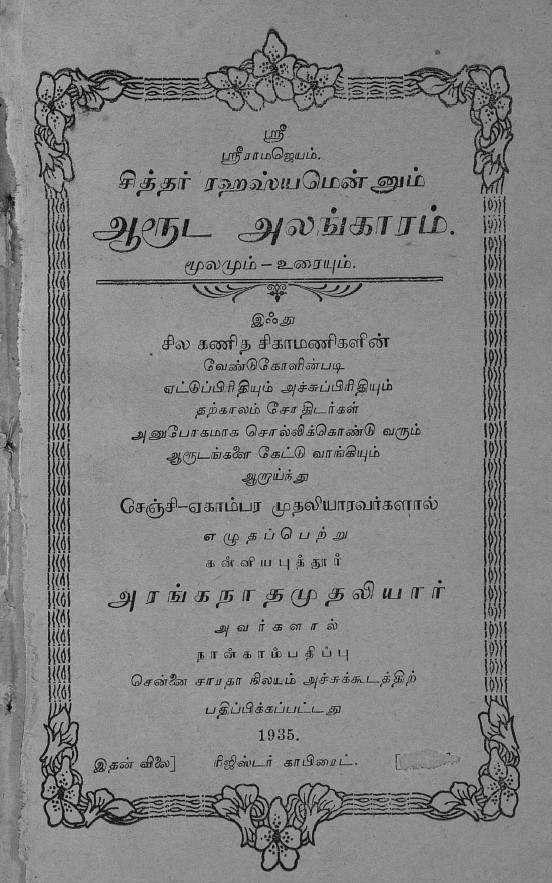 ஸ்ரீ
ஸ்ரீராமஜெயம்.
சித்தர் ரஹஸ்யமென்னும்
ஆரூட அலங்காரம்.
மூலமும் – உரையும்.
இஃது
சில கணித சிகாமணிகளின்
வேண்டுகோளின்படி
ஏட்டுப்பிரிதியும் அச்சுப்பிரிதியும்
தற்காலம் சோதிடர்கள்
அனுபோகமாக சொல்லிக்கொண்டு வரும்
ஆரூடங்களை கேட்டு வாங்கியும்
ஆராய்ந்து
செஞ்சி–ஏகாம்பர முதலியாரவர்களால்
எழுதப்பெற்று
கன்னியபுத்தூர்
அரங்கநாதமுதலியார்
அவர்களால்
நான்காம்பதிப்பு
சென்னை சாரதா நிலயம் அச்சுக்கூடத்திற்
பதிப்பிக்கப்பட்டது
1935.
இதன் விலை] ரிஜிஸ்டர் காபிரைட். [